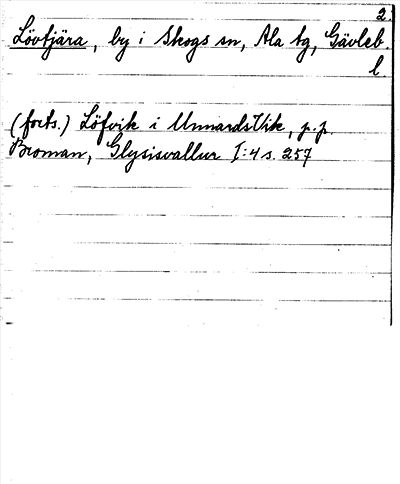 2.
Lövtjära, by i Skogs sn, Ala tg, Gävleb
l
(forts.) Löfvik i UnnardsVik, p.p.
Broman, Glysisvallur I:4 s. 257